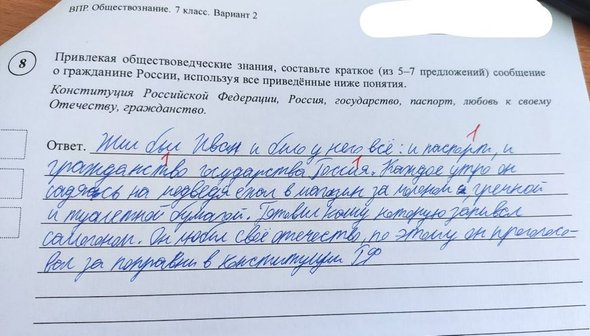 ВПР. Обществознание. 7 класс. Вариант 2
8
Привлекая обществоведческие знания, составьте краткое (из 5–7 предложений) сообщение
о гражданине России, используя все приведённые ниже понятия.
Конституция Российской Федерации, Россия, государство, паспорт, любовь к своему
Отечеству, гражданство.
1
Ответ. Жил был Иван и было у него всё: и паспорт, и
1 1
гражданство государства Россия. Каждое утро он
садясь на медведя ехал в магазин за молоком гречкой
и туалетной бумагой. Готовил кашу которую запивал
самогоном. Он любил своё отечество, по этому он проголосо-
вал за поправки в конституции РФ